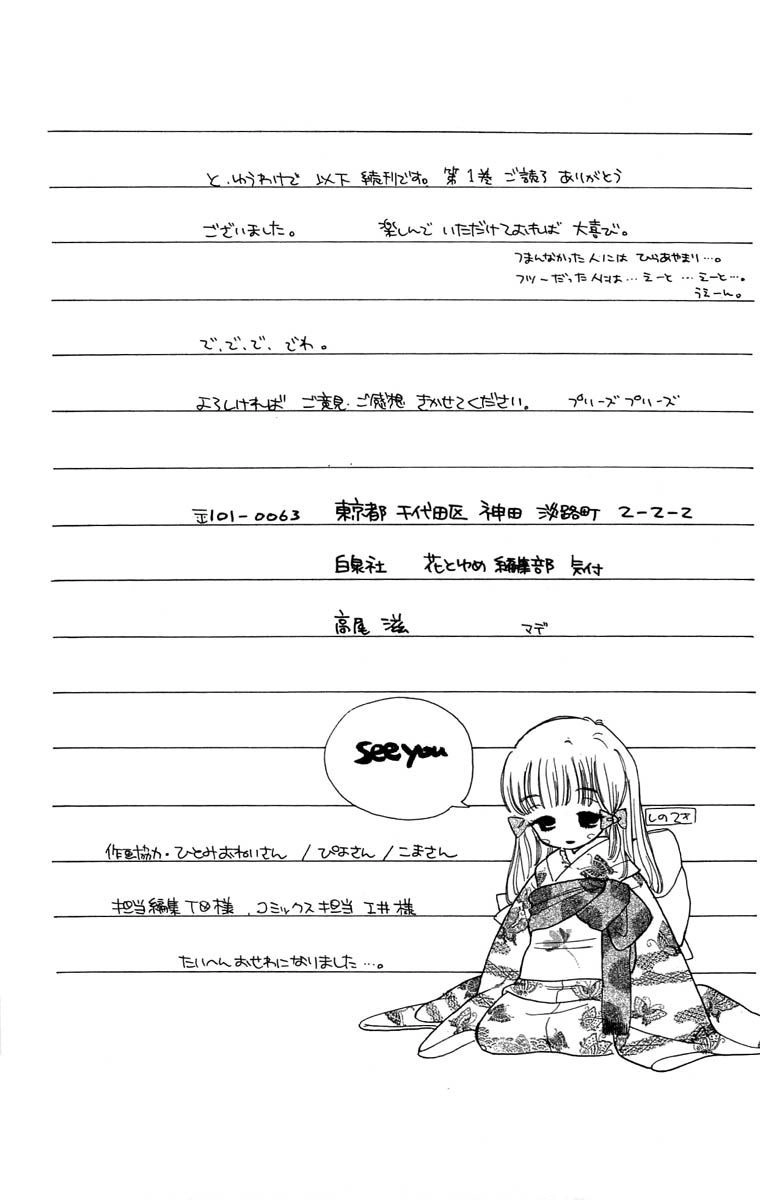 と、ゆうわけで 以下 続刊です。 第1巻 ご読了 ありがとう
ございました。 楽しんで いただけておれば 大喜び。
つまんなかった人には ひらあやまり…。
フツーだった人には… えーと … えーと…。
うえーん。
で、で、で、でわ。
よろしければ ご意見・ご感想 きかせてください。 プリーズプリーズ
〒101-0063 東京都 千代田区 神田 淡路町 2-2-2
白泉社 花とゆめ 編集部 気付
高尾 滋 マデ
see you
しのてさ
作画協力・ひとみおねいさん / ぴよさん / こまさん
担当編集 様、コミックス担当 工井 様
たいへん おせわになりました…。